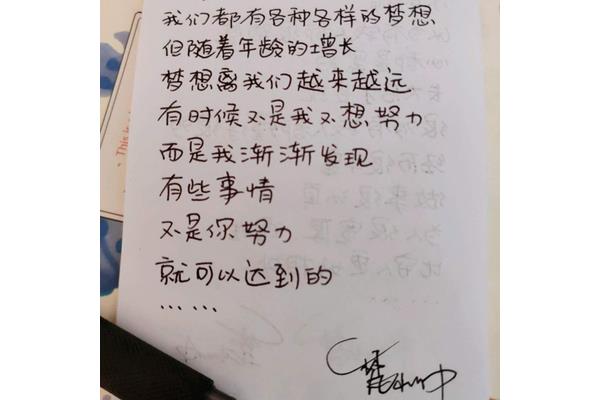 我们都有各种各样的梦想
但随着年龄的增长
梦想离我们越来越远
有时候不是我不想努力
而是我渐渐发现
有些事情
不是你努力
就可以达到的
……
This is